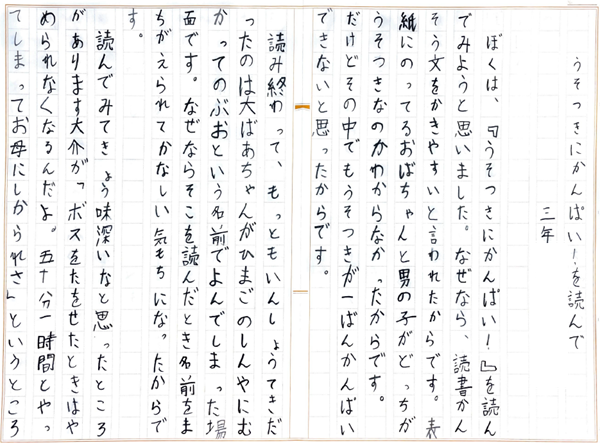 うそつきにかんぱい！を読んで
三年
ぼくは、『うそつきにかんぱい！』を読ん
でみようと思いました。なぜなら、読書かん
そう文をかきやすいと言われたからです。表
紙にのってるおばちゃんと男の子がどっちが
うそつきなのかわからなかったからです。
だけどその中でもうそつきが一ばんかんぱい
できないと思ったからです。
読み終わって、もっともいんしょうてきだ
ったのは大ばあちゃんがひまごのしんやにむ
かってのぶおという名前でよんでしまった場
面です。なぜならそこを読んだとき名前をま
ちがえられてかなしい気もちになったからで
す。
読んでみてきょう味深いなと思ったところ
があります大介が「ボスをたをせたときはや
められなくなるんだよ。五十分一時間とやっ
てしまってお母にしかられさ」というところ